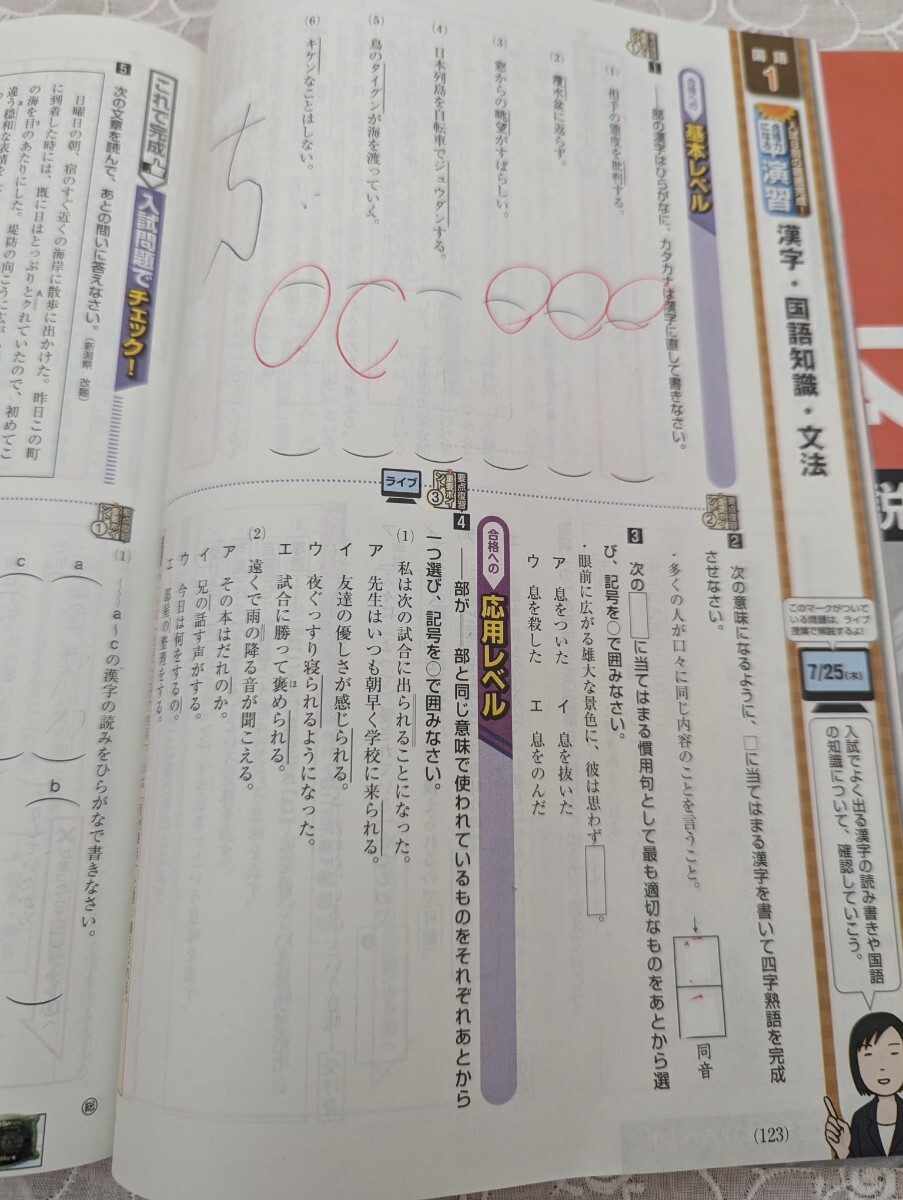 国語 1
入試8日前の総復習完成!
合格力になる 演習
漢字・国語知識・文法
このマークがついている問題は、ライブ授業で解説するよ!
7/25(木)
入試でよく出る漢字の読み書きや国語の知識について、確認していこう。
合格への 基本レベル
1 ――部の漢字はひらがなに、カタカナは漢字に直して書きなさい。
(1) 相手の態度を批判する。
(2) 覆水盆に返らず。
(3) 窓からの眺望がすばらしい。
(4) 日本列島を自転車でジュウダンする。
(5) 鳥のタイグンが海を渡っていく。
(6) キケンなことはしない。
2 次の意味になるように、□に当てはまる漢字を書いて四字熟語を完成
させなさい。
・多くの人が口々に同じ内容のことを言うこと。 → 同音
3 次の□に当てはまる慣用句として最も適切なものをあとから選
び、記号を○で囲みなさい。
・眼前に広がる雄大な景色に、彼は思わず□。
ア 息をついた イ 息を抜いた
ウ 息を殺した エ 息をのんだ
合格への 応用レベル
ライブ
4 ――部が――部と同じ意味で使われているものをそれぞれあとから
一つ選び、記号を○で囲みなさい。
(1) 私は次の試合に出られることになった。
ア 先生はいつも朝早く学校に来られる。
イ 友達の優しさが感じられる。
ウ 夜ぐっすり寝られるようになった。
エ 試合に勝って褒められる。
ほ
(2) 遠くで雨の降る音が聞こえる。
ア その本はだれのか。
イ 兄の話す声がする。
ウ 今日は何をするの。
エ 部屋の整理をする。
(123)
これで完成 入試問題でチェック!
5 次の文章を読んで、あとの問いに答えなさい。(新潟県 改題)
日曜日の朝、宿のすぐ近くの海岸に散歩に出かけた。昨日この町
に到着した時には、既に日はとっぷりとクれていたので、初めてこ
の海を目のあたりにした。堤防の向こうに広が
違う穏和な表情を
(1) 〜〜〜a〜cの漢字の読みをひらがなで書きなさい。
a
b
c